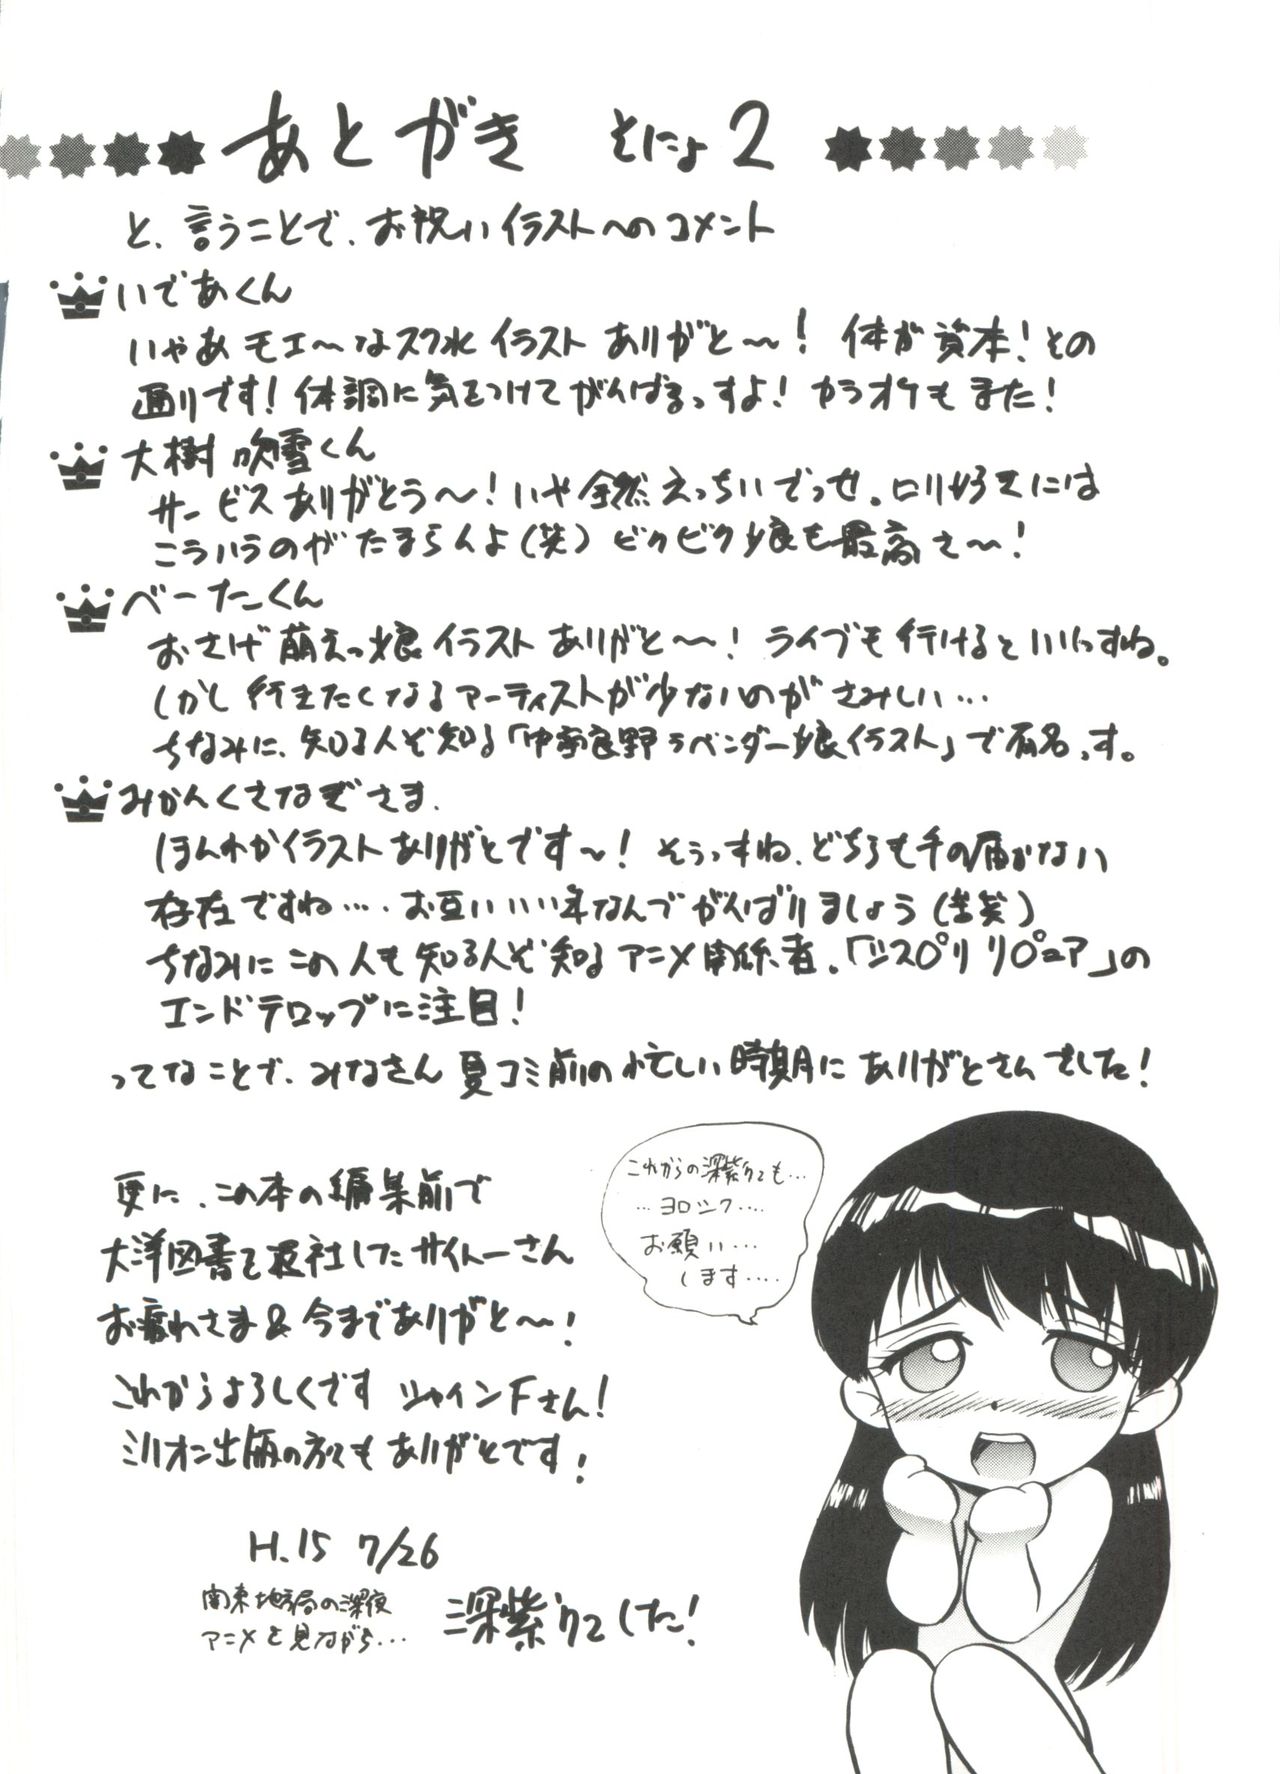 あとがき そにょ2
と、言うことで、お祝いイラストへのコメント
いであくん
いやあモエ〜なスク水イラストありがと〜！体が資本！との
通りです！体調に気をつけてがんばるっすよ！カラオケもまた！
大樹吹雪くん
サービスありがとう〜！いや全然えっちいでっせ。ロリ好きには
こういうのがたまらんよ(笑) ビクビク娘も最高さ〜！
べーたくん
おさげ萌えっ娘イラストありがと〜！ライブも行けるといいっすね。
しかし行きたくなるアーティストが少ないのがさみしい…
ちなみに、知る人ぞ知る「中富良野ラベンダー娘イラスト」で有名っす。
みかんくさなぎさま.
ほんわかイラストありがとです〜！そうっすね、どちらも手の届かない
存在ですね…．お互いいい年なんでがんばりましょう(苦笑)
ちなみにこの人も知る人ぞ知るアニメ関係者。「シスプリ リピュア」の
エンドテロップに注目！
ってなことで、みなさん夏コミ前の忙しい時期にありがとさんでした！
更に、この本の編集前で
大洋図書を退社したサイトーさん
お疲れさま＆今までありがと〜！
これからよろしくです シャインFさん！
ミリオン出版の方々もありがとです！
これからの深紫クンも…
…ヨロシク….
お願い…
します….
H.15 7/26
関東地方局の深夜
アニメを見ながら…
深紫クンでした！